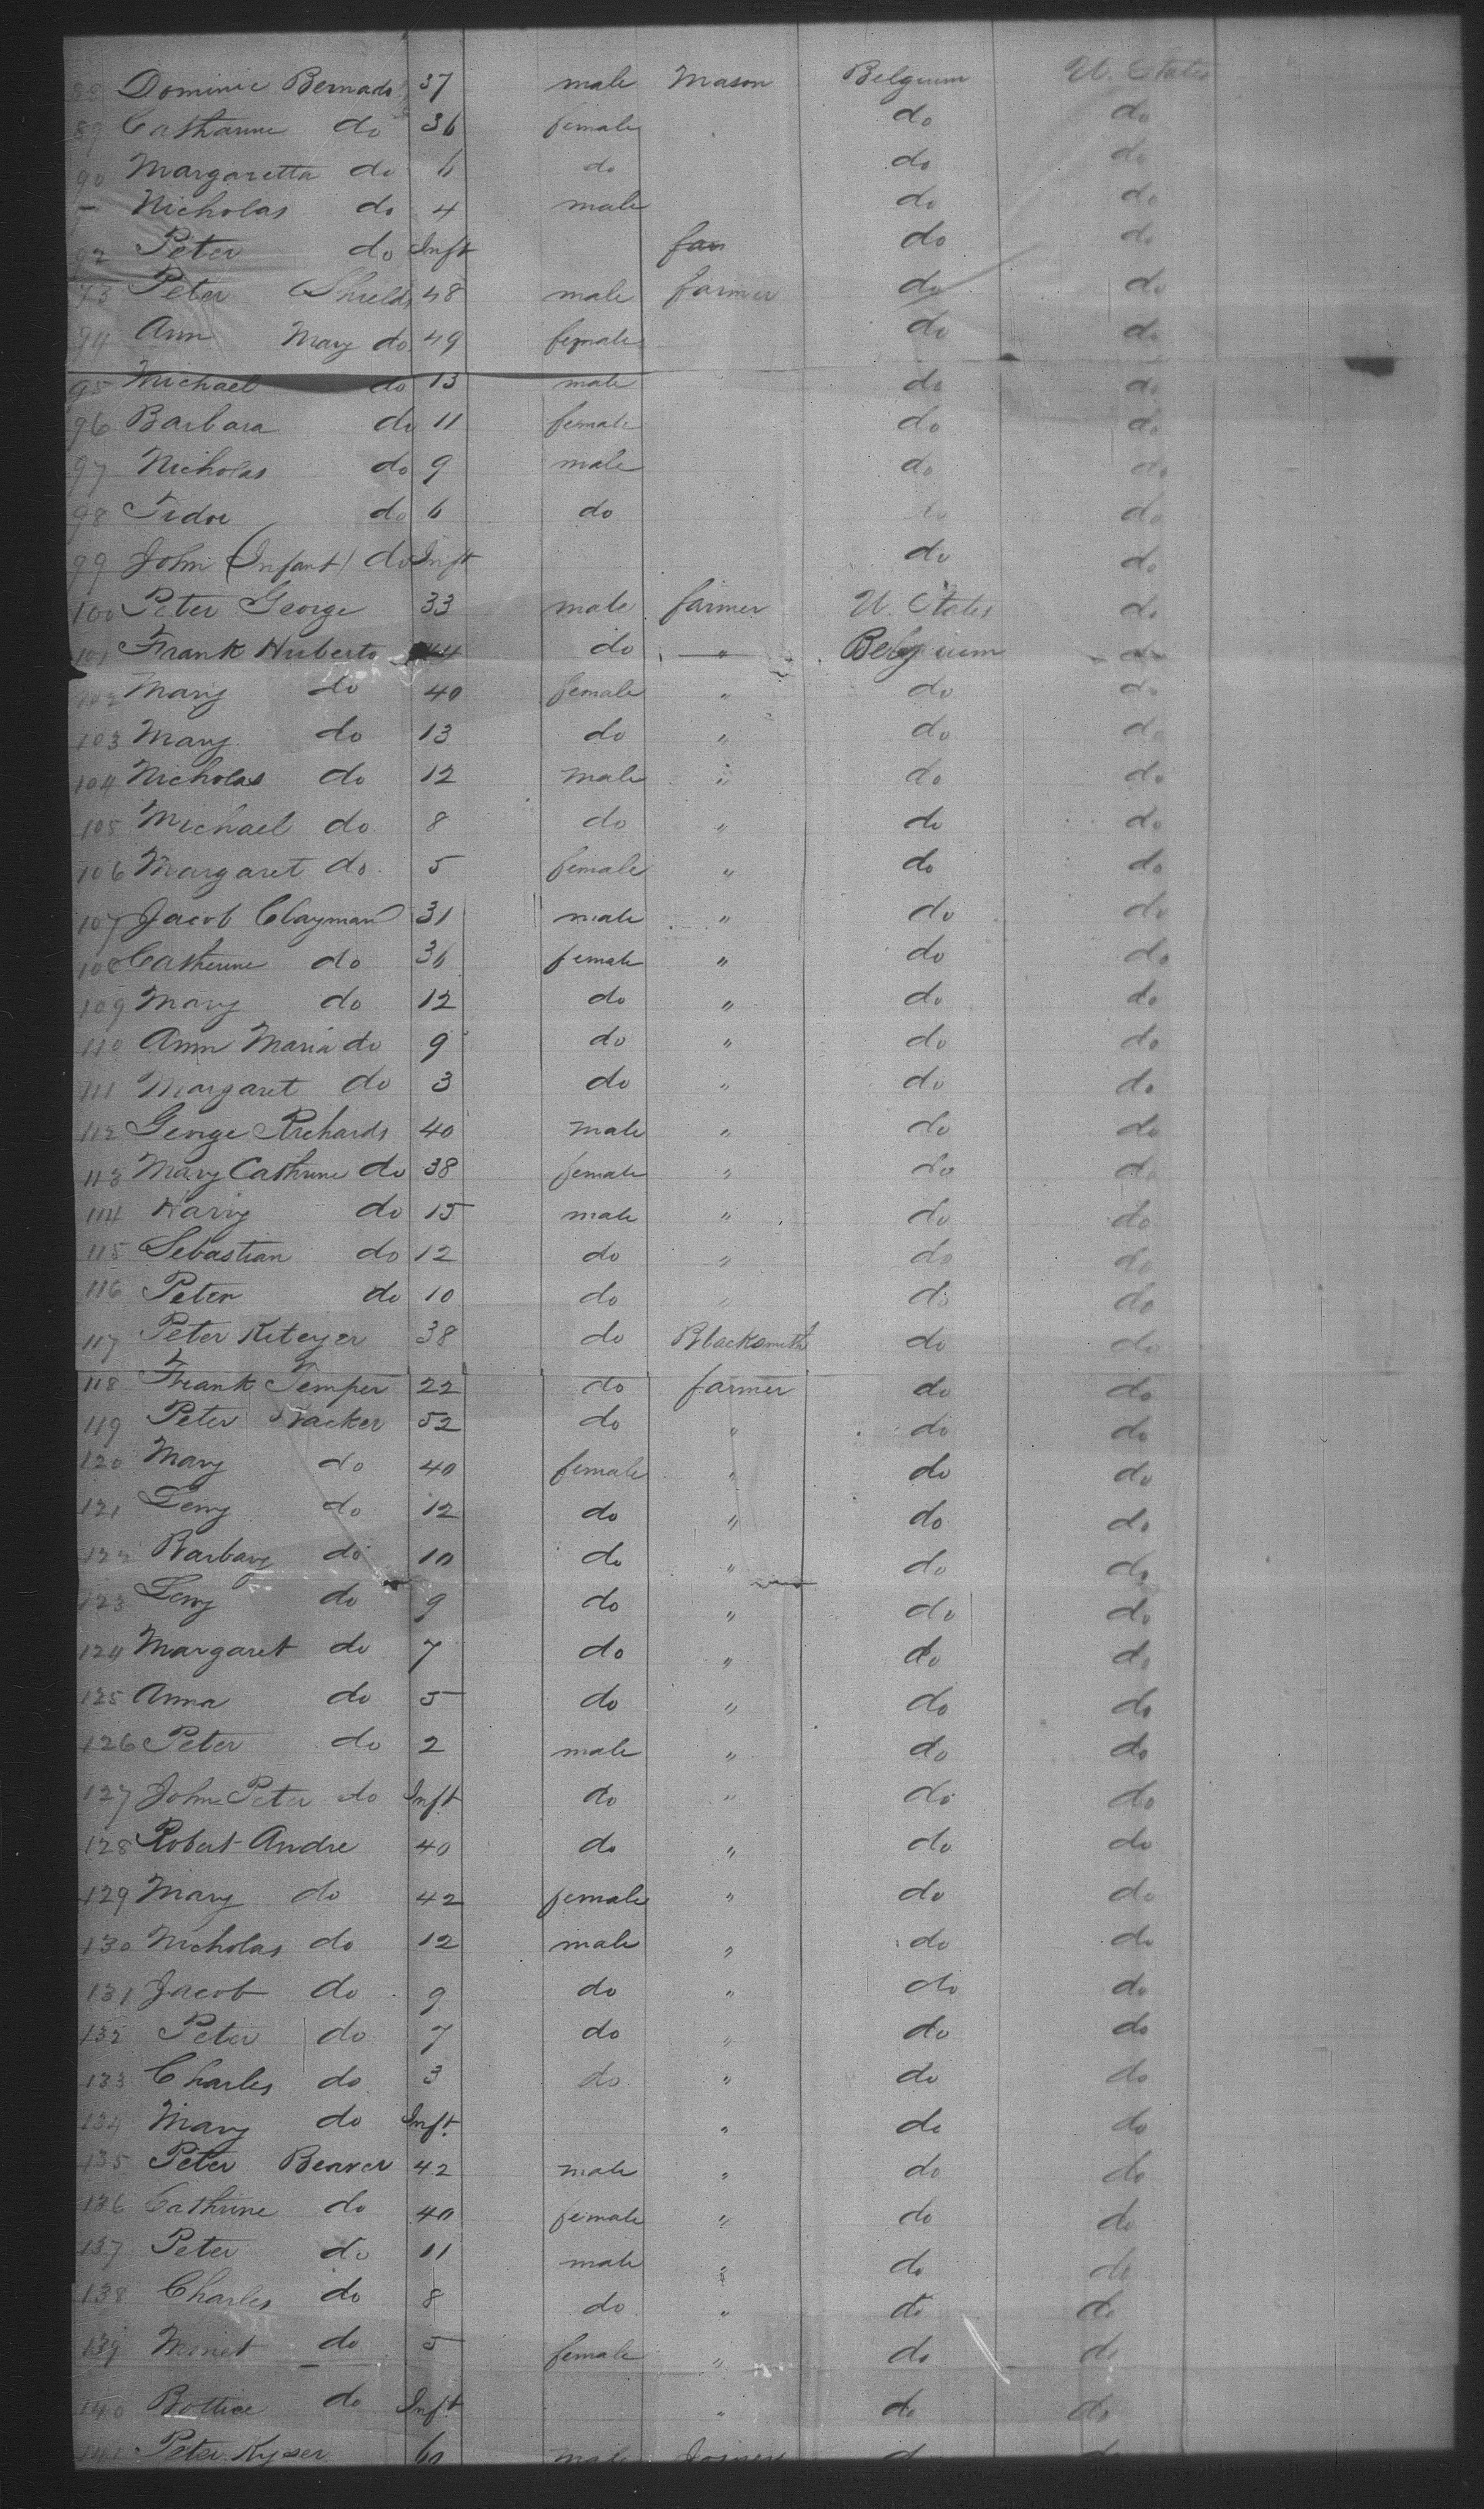 88 Dominic Bernado 37 male Mason Belgium U. States
89 Catharine do 36 female do do
90 Margaretta do 6 do do do
Nicholas do 4 male do do
92 Peter do Inft far do do
93 Peter Shields 48 male farmer do do
94 Ann Mary do 49 female do do
95 Michael do 13 male do do
96 Barbara do 11 female do do
97 Nicholas do 9 male do do
98 do 6 do do do
99 John (Infant) do Inft do do
100 Peter George 33 male farmer U. States do
101 Frank Huberts 44 do " Belgium do
102 Mary do 40 female " do do
103 Mary do 13 do " do do
104 Nicholas do 12 male " do do
105 Michael do 8 do " do do
106 Margaret do 5 female " do do
107 Jacob Clayman 31 male " do do
108 Catherine do 36 female " do do
109 Mary do 12 do " do do
110 Ann Maria do 9 do " do do
111 Margaret do 3 do " do do
112 George Richards 40 male " do do
113 Mary Cathrine do 38 female " do do
114 Harry do 15 male " do do
115 Sebastian do 12 do " do do
116 Peter do 10 do " do do
117 Peter Kiteyer 38 do Blacksmith do do
118 Frank Temper 22 do farmer do do
119 Peter Wacker 52 do " do do
120 Mary do 40 female " do do
121 Leny do 12 do " do do
122 Barbary do 10 do " do do
123 Leny do 9 do " do do
124 Margaret do 7 do " do do
125 Anna do 5 do " do do
126 Peter do 2 male " do do
127 John Peter do Inft do " do do
128 Robert Andre 40 do " do do
129 Mary do 42 female " do do
130 Nicholas do 12 male " do do
131 Jacob do 9 do " do do
132 Peter do 7 do " do do
133 Charles do 3 do " do do
134 Mary do Inft. " do do
135 Peter Beaver 42 male " do do
136 Cathrine do 40 female " do do
137 Peter do 11 male " do do
138 Charles do 8 do " do do
139 do 5 female " do do
140 do Inft " do do
141 Peter Kyser 60 male Joiner do do